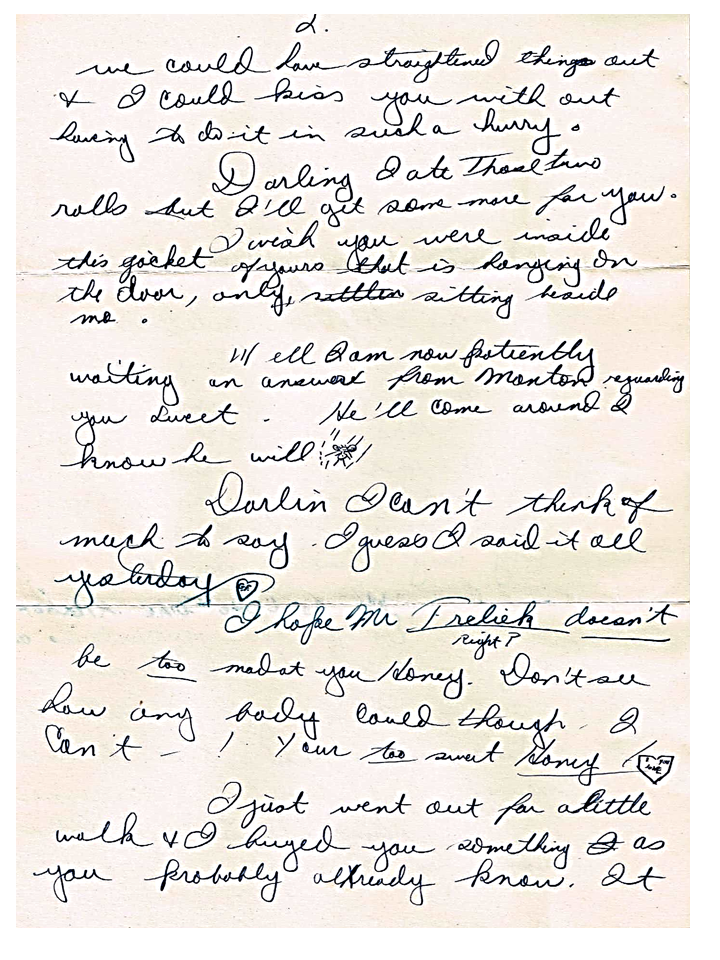 2.
we could have straightened things out
& I could kiss you with out
having to do it in such a hurry.
Darling I ate those two
rolls but I'll get some more for you.
I wish you were inside
this jocket of yours that is hanging on
the door, only, settler sitting beside
me.
Well I am now patiently
waiting an answer from Manton regarding
you sweet. He'll come around I
know he will
Darlin I can't think of
much to say. I guess I said it all
yesterday
I hope Mr Frelick doesn't
Right?
be too mad at you Honey. Don't see
how any body could though. I
Can't - ! Your too sweet Honey
I just went out for a little
walk & I buyed you something I as
you probably already know. It